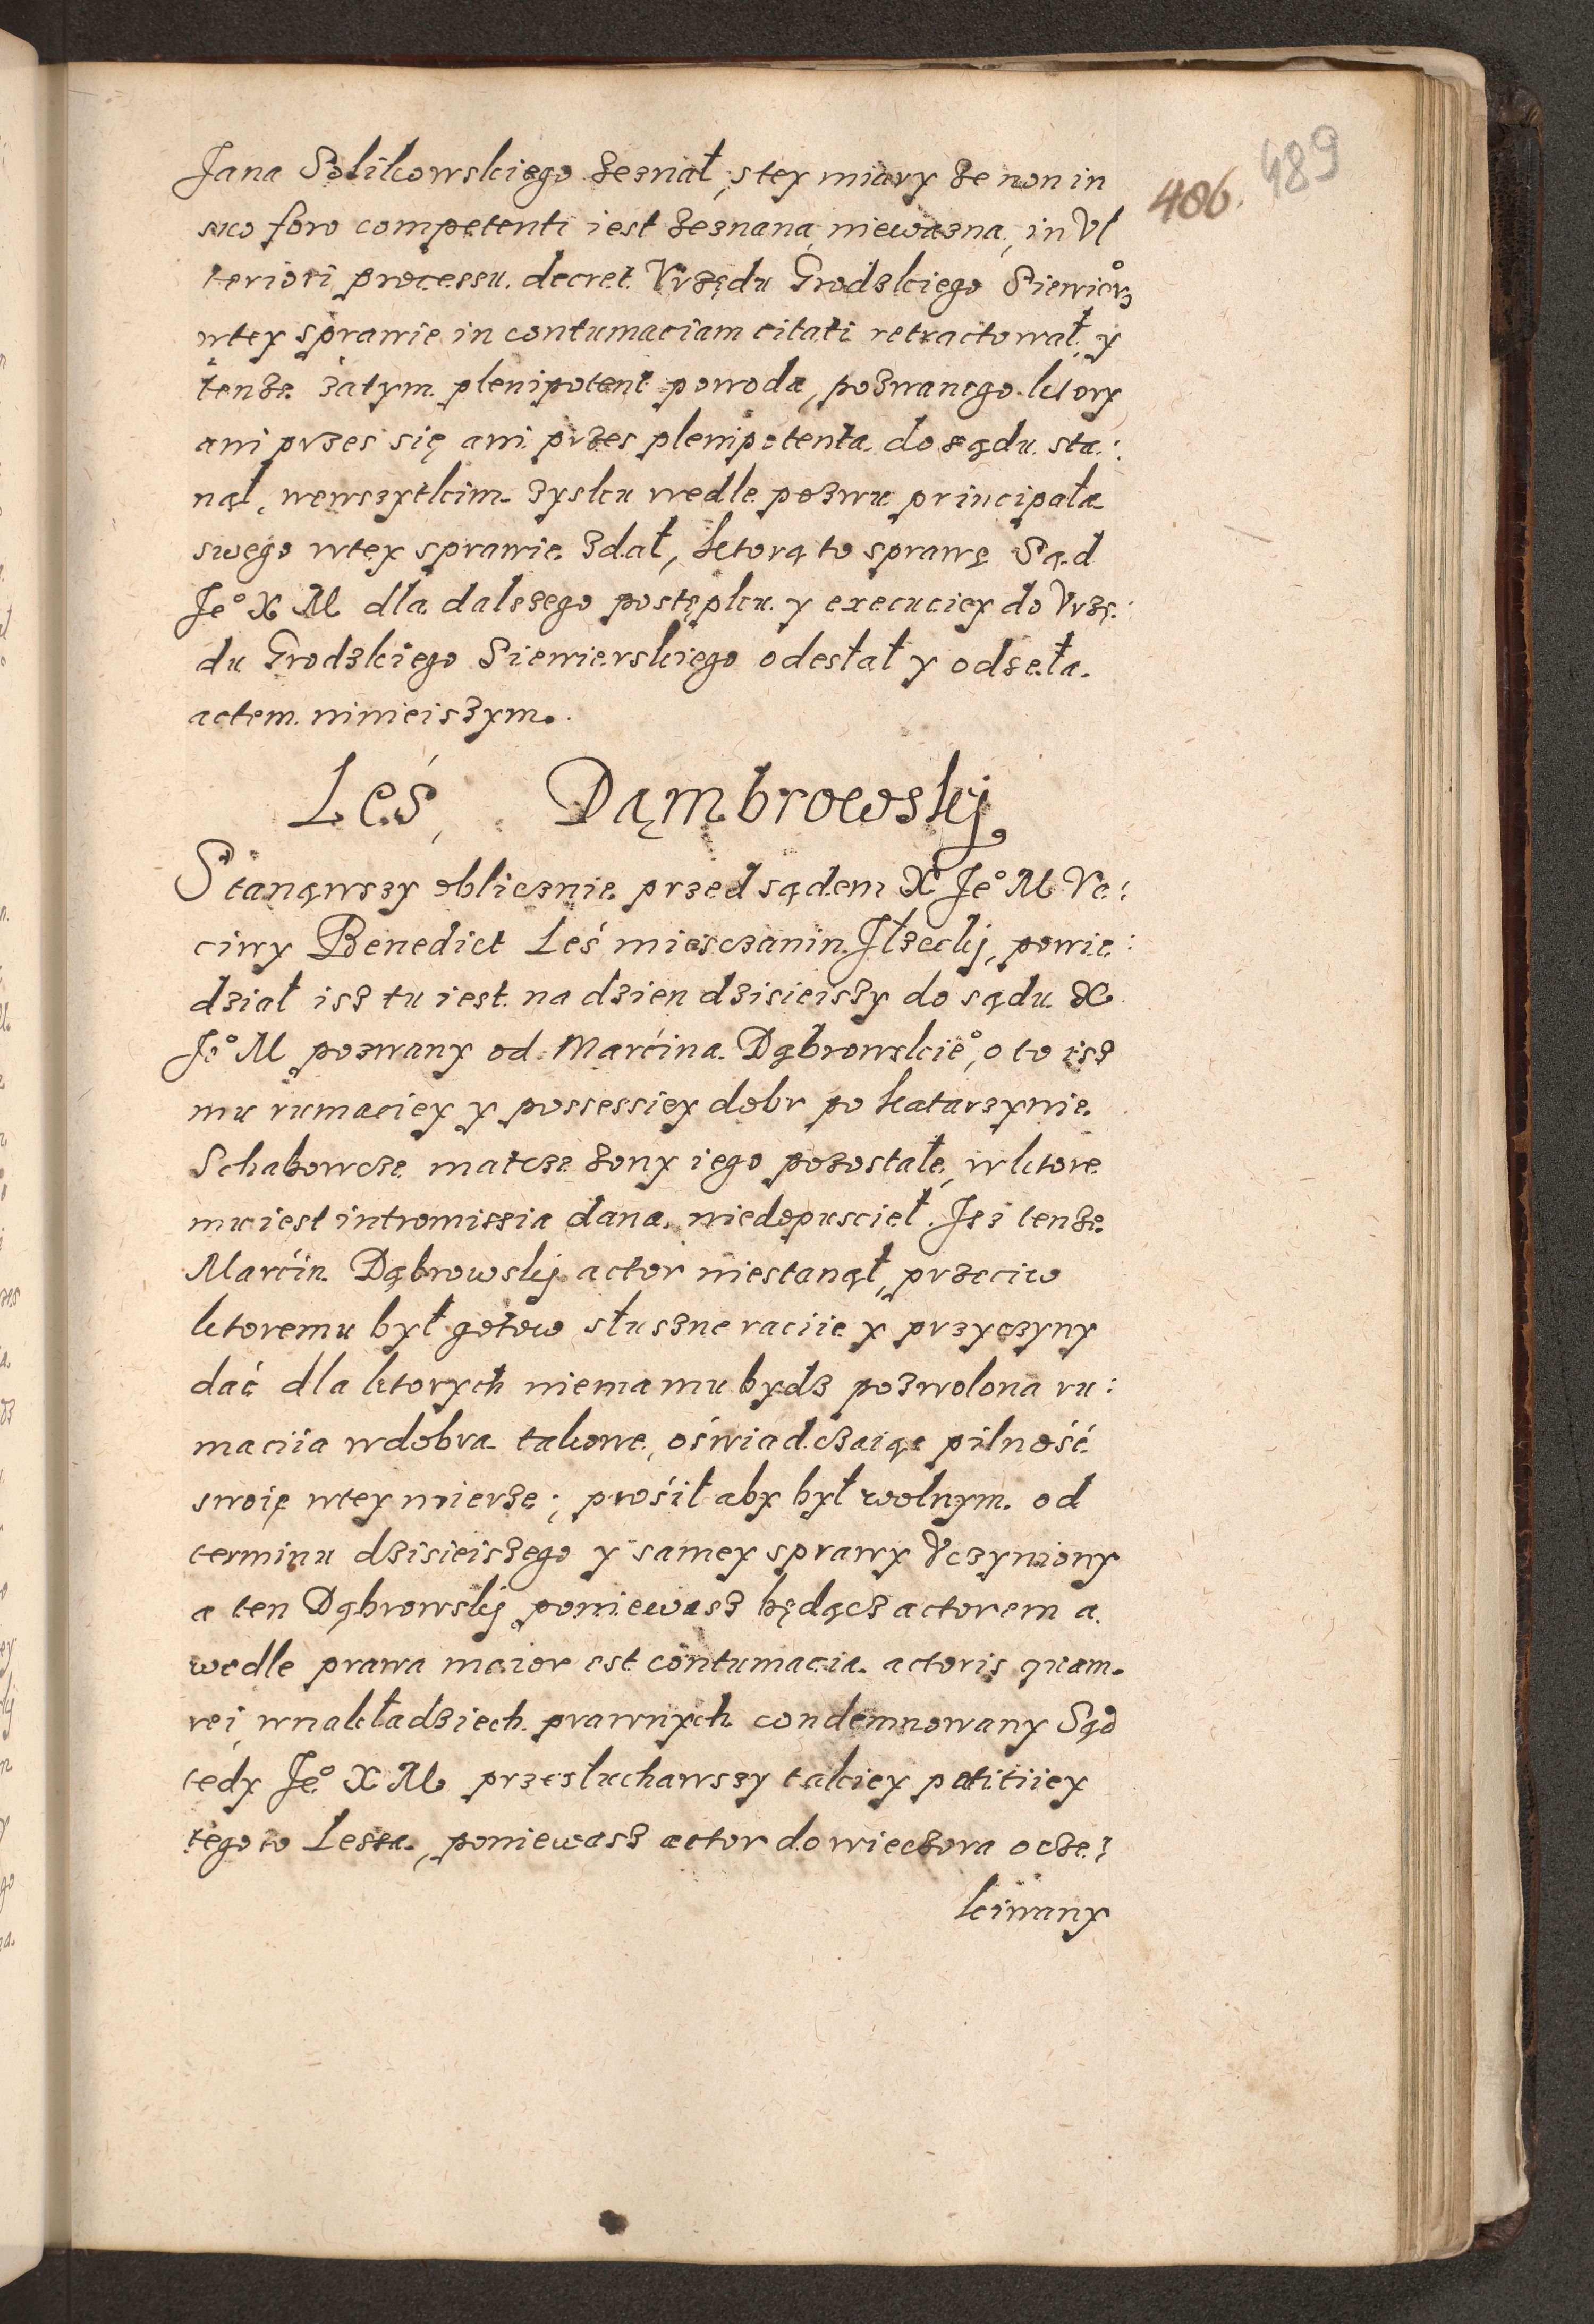 Jana Solikowskiego zeznał, stey miary ze non in
suo foro competenti iest zeznana, niewazna, in Vl
teriori processu decret Vrzędu Grodzkiego Siewior̊z
wtey sprawie in contumaciam citati retractował, y
tenze zatym plenipotent powoda, pozwanego ktory
ani przes się ani przes plenipotenta do sądu sta:
nął, wewszytkim zysku wedle pozwu principała
swego wtey sprawie zdał, ktorą to sprawę Sąd
Je° X M dla dalszego postępku y execuciey do Vrzę:
du Grodzkiego Siewierskiego odesłał y odseła
actem ninieiszym.
Leś, Dąmbrowskj
Stanąwszy oblicznie przed sądem X Je° M Vc:
ciwy Benedict Leś miesczanin Jłzeckj, powie:
dział isz tu iest na dzien dzisieiszy do sądu X
Je° M pozwany od Marćina Dąbrowskie°, o to isz
mu rumaciey y possessiey dobr po Katarzynie
Schabowcze matcze zony iego pozostałe, wktore
mu iest intromissia dana, niedopusciel. Jsz tenze
Marćin Dąbrowskj actor niestanął, przeciw
ktoremu był gotow słuszne raciie y przyczyny
dać dla ktorych niema mu bydz pozwolona ru:
maciia wdobra takowe, oświadczaiąc pilność
swoię wtey mierze; prośił aby był wolnym od
terminu dzisieiszego y samey sprawy Vczyniony
a ten Dąbrowskj poniewasz będącz actorem a
wedle prawa maior est contumacia actoris quam
rei, wnakładziech prawnych condemnowany Sąd
tedy Je° X M przesłuchawszy takiey petitiiey
tego to Lessa, poniewasz actor do wieczora ocze:
kiwany
486.
489